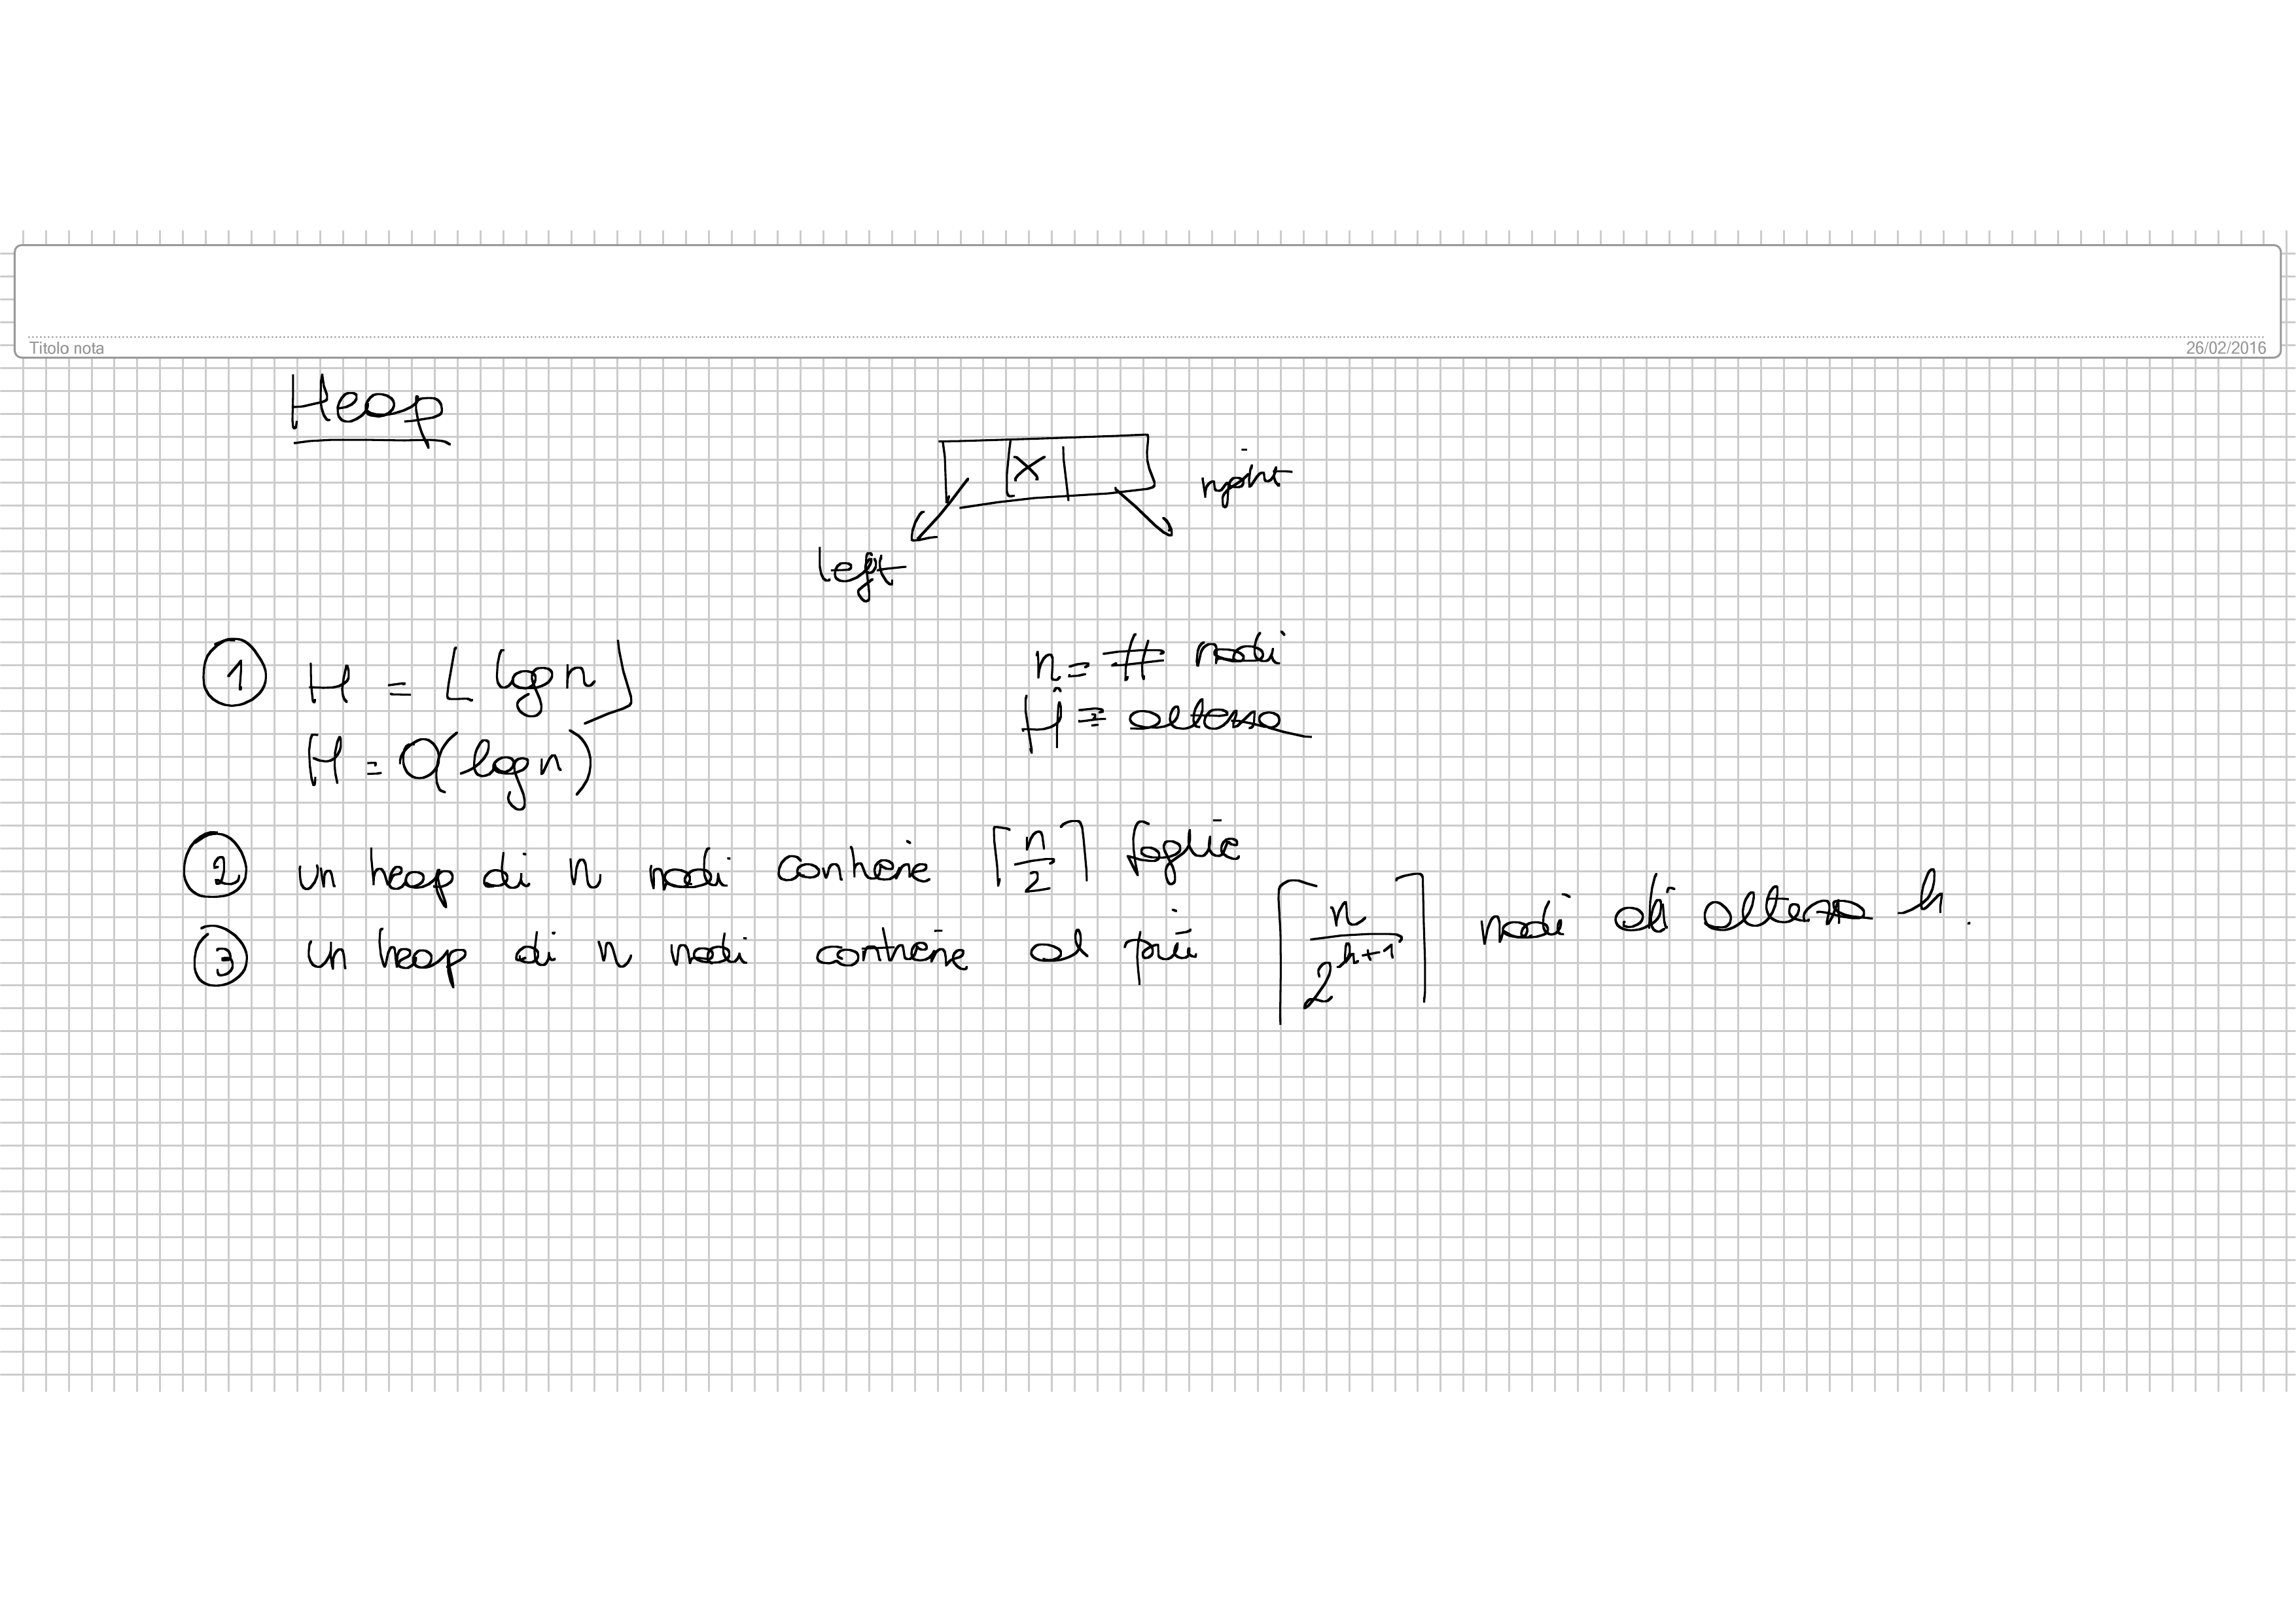 Titolo nota
26/02/2016
Heap
X
right
left
① H = ⌊log n⌋
n = # nodi
H = altezza
H = O(log n)
② un heap di n nodi contiene ⌈n/2⌉ foglie
③ un heap di n nodi contiene al più ⌈n/2^(h+1)⌉ nodi di altezza h.